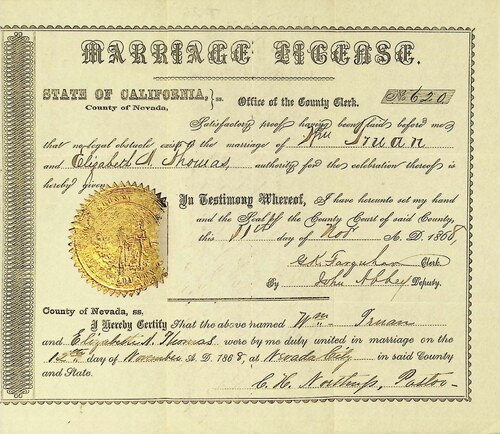 MARRIAGE LICENSE.
STATE OF CALIFORNIA, } ss.
County of Nevada,
Office of the County Clerk.
No. 620
Satisfactory proof having been laid before me
that no legal obstacle exists to the marriage of Wm Truan
and Elizabeth A. Thomas, authority for the celebration thereof is
hereby given.
In Testimony Whereof, I have hereunto set my hand
and the Seal of the County Court of said County,
this 11th day of Nov. A. D. 1868
G.K. Farquhar Clerk.
By John Abbey Deputy.
County of Nevada, ss.
I Hereby Certify That the above named Wm. Truan
and Elizabeth A. Thomas were by me duly united in marriage on the
12th day of November A. D. 1868, at Nevada City in said County
and State.
C. H. Northup, Pastor